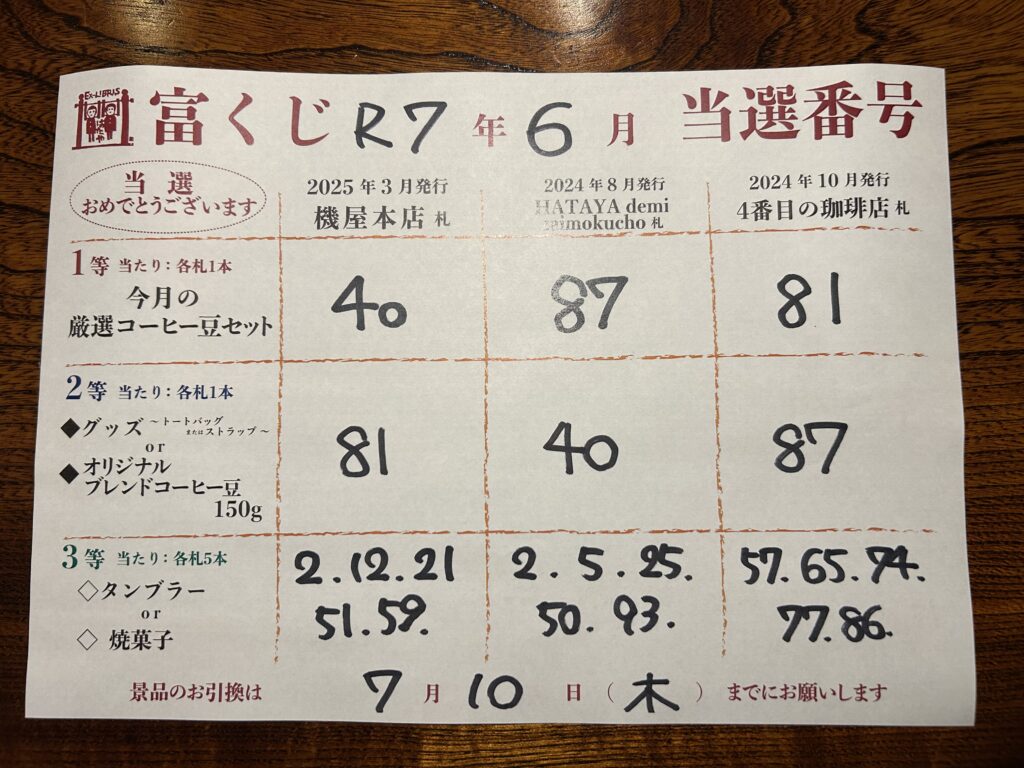 EX-LIBRIS
富くじ R7年 6月 当選番号
当選
おめでとうございます
2025年3月発行
機屋本店 札
2024年8月発行
HATAYA demi
zaimokucho 札
2024年10月発行
4番目の珈琲店 札
1等 当たり：各札1本
今月の
厳選コーヒー豆セット
40 87 81
2等 当たり：各札1本
◆グッズ ～トートバッグ
またはストラップ～
or
◆オリジナル
ブレンドコーヒー豆
150g
81 40 87
3等 当たり：各札5本
◇タンブラー
or
◇ 焼菓子
2.12.21
51.59.
2.5.25.
50.93.
57.65.74.
77.86.
景品のお引換は 7月10日（木）までにお願いします